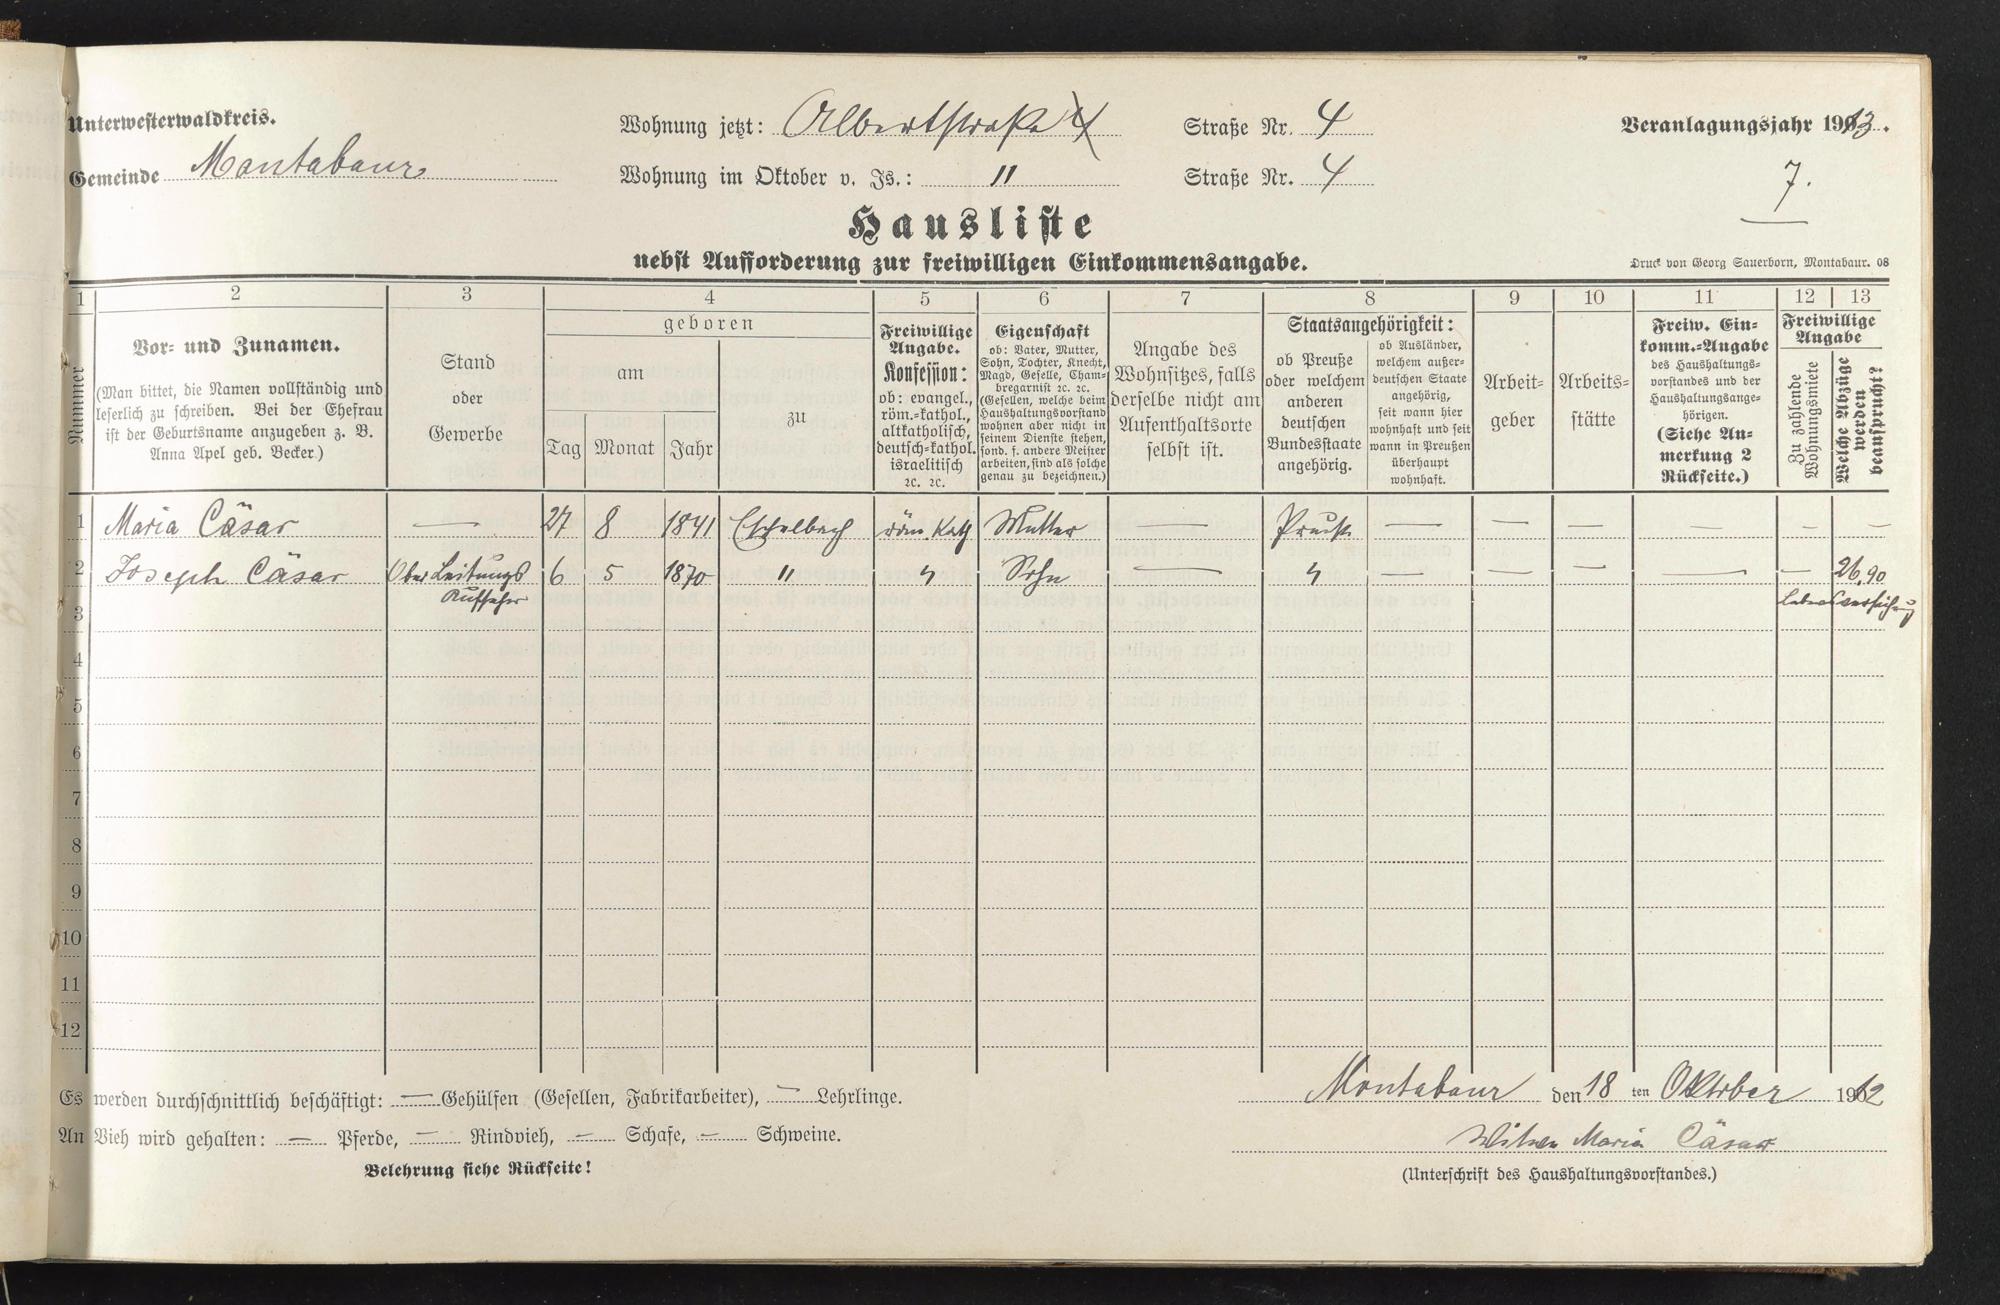 Unterwesterwaldkreis.
Wohnung jetzt: Albertstraße 4 Straße Nr. 4
Veranlagungsjahr 1913.
Gemeinde Montabaur
Wohnung im Oktober v. Js.: " Straße Nr. 4
7.
Hausliste
nebst Aufforderung zur freiwilligen Einkommensangabe.
Druck von Georg Sauerborn, Montabaur. 08
1 2 3 4 5 6 7 8 9 10 11 12 13
Nummer
Vor- und Zunamen.
(Man bittet, die Namen vollständig und
leserlich zu schreiben. Bei der Ehefrau
ist der Geburtsname anzugeben z. B.
Anna Apel geb. Becker.)
Stand
oder
Gewerbe
geboren
am
Tag Monat Jahr
zu
Freiwillige
Angabe.
Konfession:
ob: evangel.,
röm.-kathol.,
altkatholisch,
deutsch-kathol.
israelitisch
ꝛc. ꝛc.
Eigenschaft
ob: Vater, Mutter,
Sohn, Tochter, Knecht,
Magd, Geselle, Cham-
bregarnist ꝛc. ꝛc.
(Gesellen, welche beim
Haushaltungsvorstand
wohnen aber nicht in
seinem Dienste stehen,
sond. f. andere Meister
arbeiten, sind als solche
genau zu bezeichnen.)
Angabe des
Wohnsitzes, falls
derselbe nicht am
Aufenthaltsorte
selbst ist.
Staatsangehörigkeit:
ob Preuße
oder welchem
anderen
deutschen
Bundesstaate
angehörig.
ob Ausländer,
welchem außer-
deutschen Staate
angehörig,
seit wann hier
wohnhaft und seit
wann in Preußen
überhaupt
wohnhaft.
Arbeit-
geber
Arbeits-
stätte
Freiw. Ein-
komm.-Angabe
des Haushaltungs-
vorstandes und der
Haushaltungsange-
hörigen.
(Siehe An-
merkung 2
Rückseite.)
Freiwillige
Angabe
Zu zahlende
Wohnungsmiete
Welche Abzüge
werden
beansprucht?
1 Maria Cäsar — 27 8 1841 Eschelbach röm Kath Mutter — Preuße — — — — — —
2 Joseph Cäsar Ober Leitungs 6 5 1870 " " Sohn — " — — — — — 26,90
Aufseher
Lebensversicherung
3
4
5
6
7
8
9
10
11
12
Es werden durchschnittlich beschäftigt: — Gehülfen (Gesellen, Fabrikarbeiter), — Lehrlinge.
Montabaur den 18 ten Oktober 1912
An Vieh wird gehalten: — Pferde, — Rindvieh, — Schafe, — Schweine.
Witwe Maria Cäsar
Belehrung siehe Rückseite!
(Unterschrift des Haushaltungsvorstandes.)